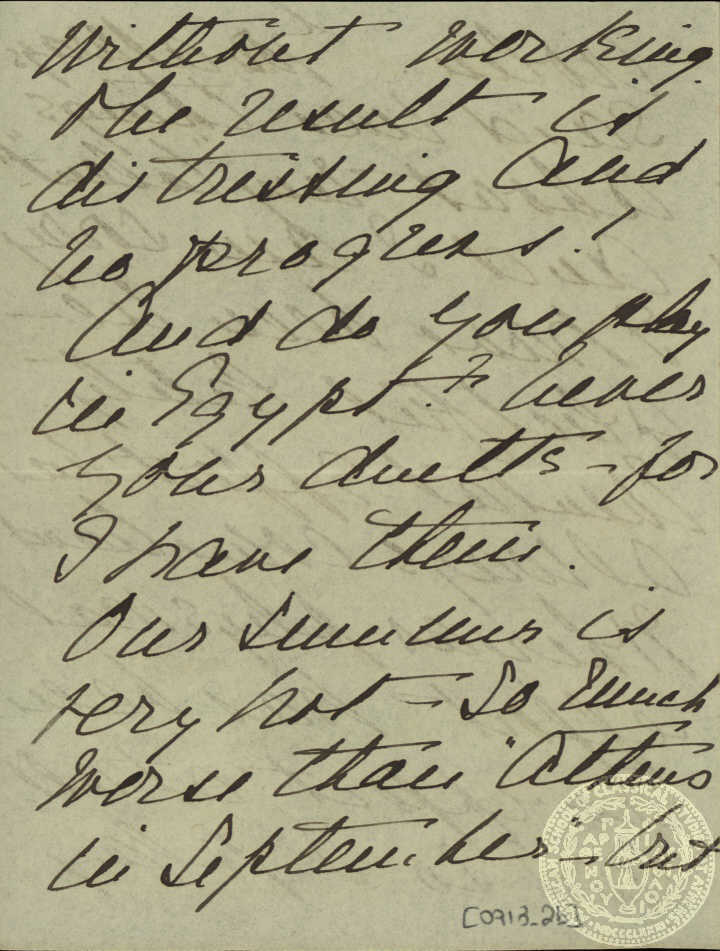 without working
the result is
distressing and
no progress!
And do you play
in Egypt? Never
your duetts – for
I have them.
Our summer is
very hot – so much
worse than "Athens
in September" – but
[0713_2b]